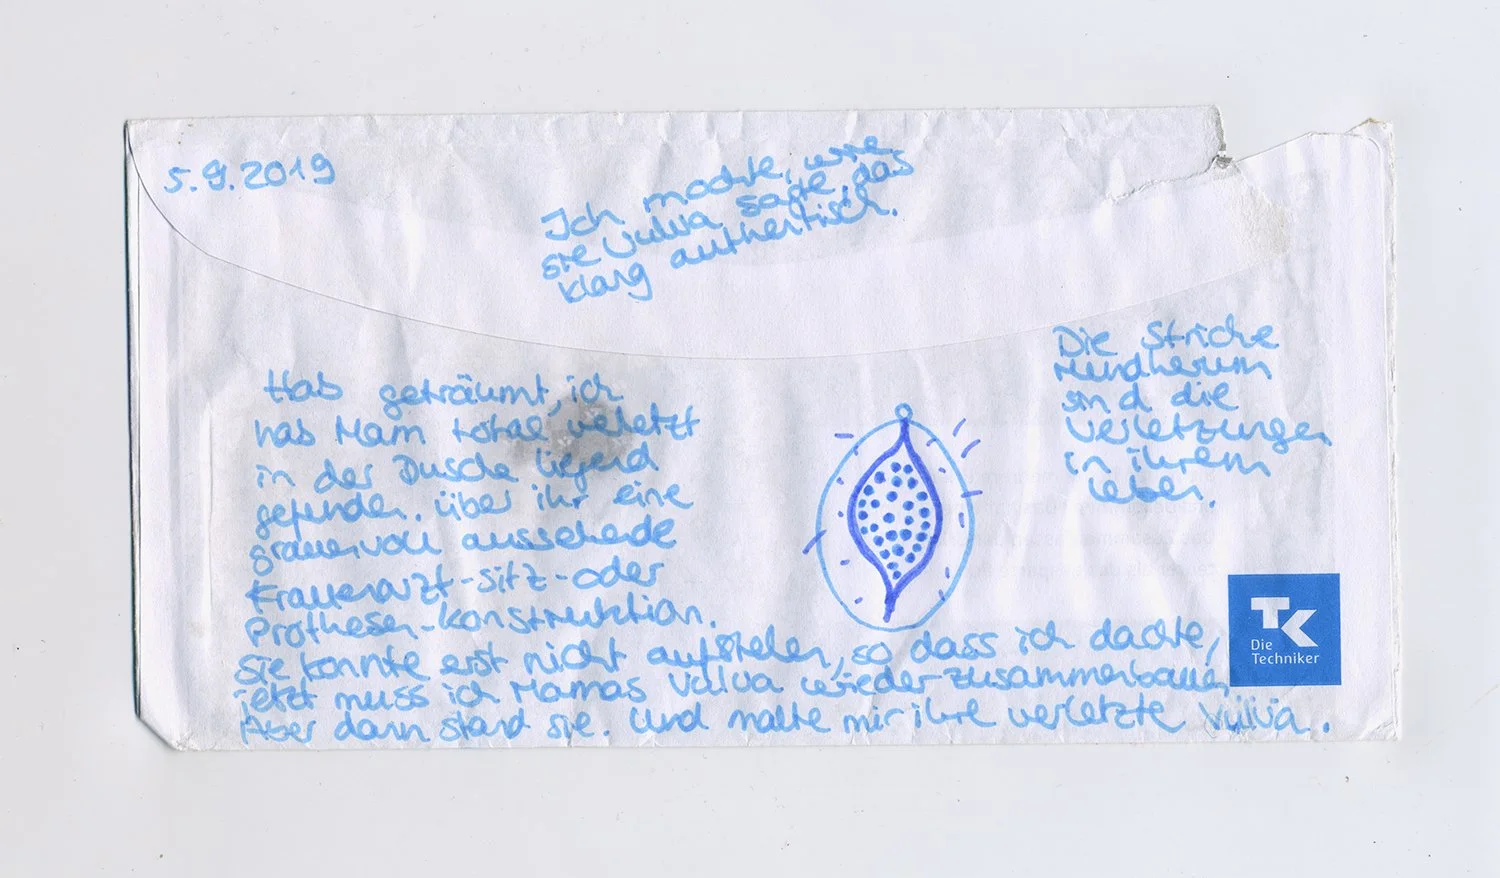 5.9.2019
Ich mochte, wie
sie Vulva sagte, das
klang authentisch.
Die Striche
rundherum
sind die
Verletzungen
in ihrem
Leben.
Hab geträumt, ich
hab Mam total verletzt
in der Dusche liegend
gefunden. über ihr eine
grauenvoll aussehende
Frauenarzt-sitz-oder
Prothesen-Konstruktion.
Sie konnte erst nicht aufstehen, so dass ich dachte,
jetzt muss ich Mamas Vulva wieder zusammenbauen
Aber dann stand sie. Und malte mir ihre verletzte Vulva.
TK
Die
Techniker